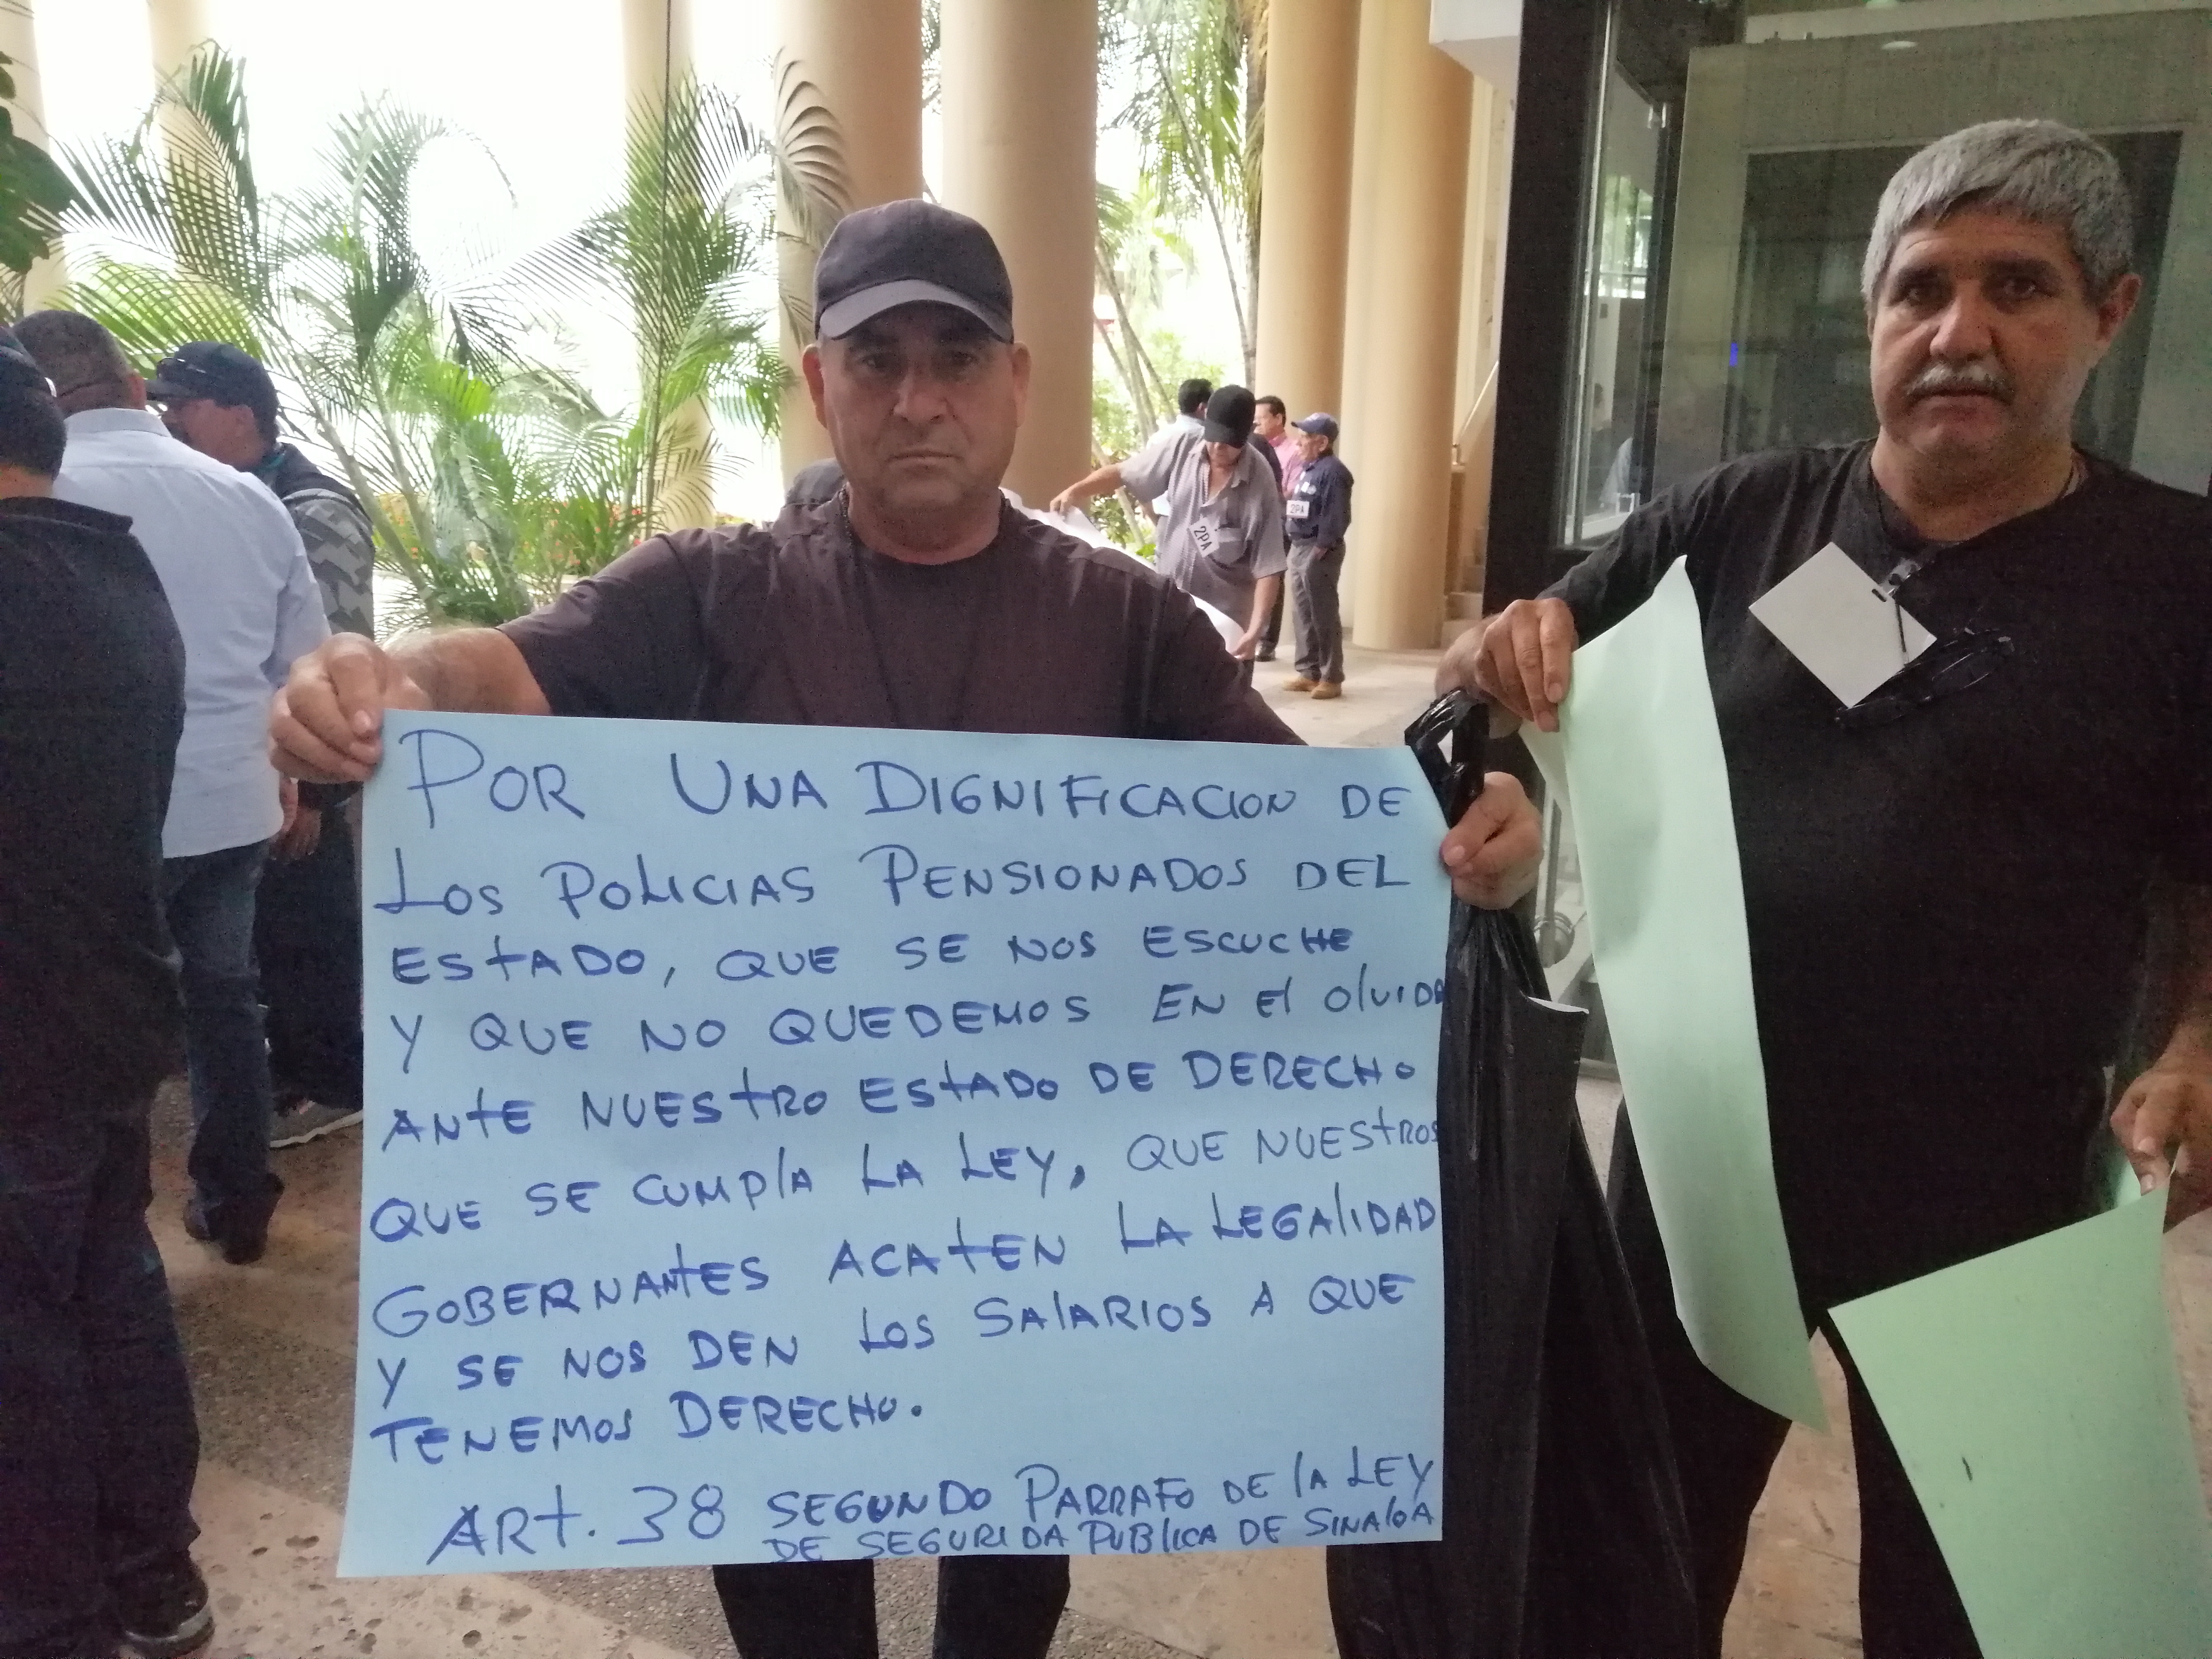 POR UNA DIGNIFICACION DE
LOS POLICIAS PENSIONADOS DEL
ESTADO, QUE SE NOS ESCUCHE
Y QUE NO QUEDEMOS EN El OlVIDO
ANTE NUESTRO ESTADO DE DERECHO
QUE SE CUMPlA LA LEY, QUE NUESTROS
GOBERNANTES ACATEN LA LEGAlIDAD
Y SE NOS DEN LOS SAlARIOS A QUE
TENEMOS DERECHO.
ART. 38 SEGUNDO PARRAFO DE lA LEY
DE SEGURIDA PUBlICA DE SINAlOA
2PA
2PA